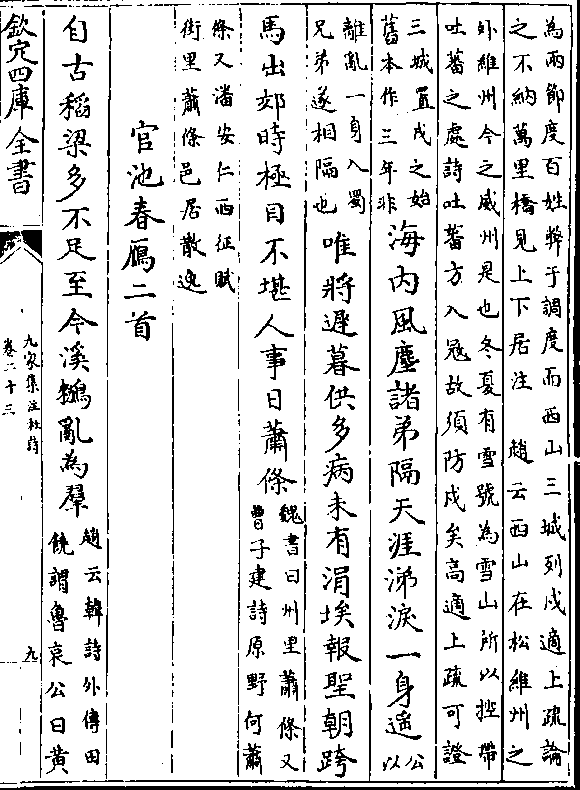 為兩節度百姓弊于調度而西山三城列戍適上疏論
之不納萬里橋見上下居注　趙云西山在松維州之
外維州今之威州是也冬夏有雪號為雪山所以控帶
吐蕃之處詩吐蕃方入冦故須防戍矣高適上疏可證
三城置戍之始
舊本作三年非
海内風塵諸弟隔天涯涕淚一身遙
公以
離亂一身入蜀
兄弟遂相隔也
唯將遲暮供多病未有涓埃報聖朝跨
馬出郊時極目不堪人事日蕭條
魏書曰州里蕭條又
曹子建詩原野何蕭
條又潘安仁西征賦
街里蕭條邑居散逸
官池春鴈二首
自古稻粱多不足至今溪鶒亂為羣
趙云韓詩外傳田
饒謂魯哀公曰黄
欽定四庫全書
九家集注杜詩
卷二十三
九